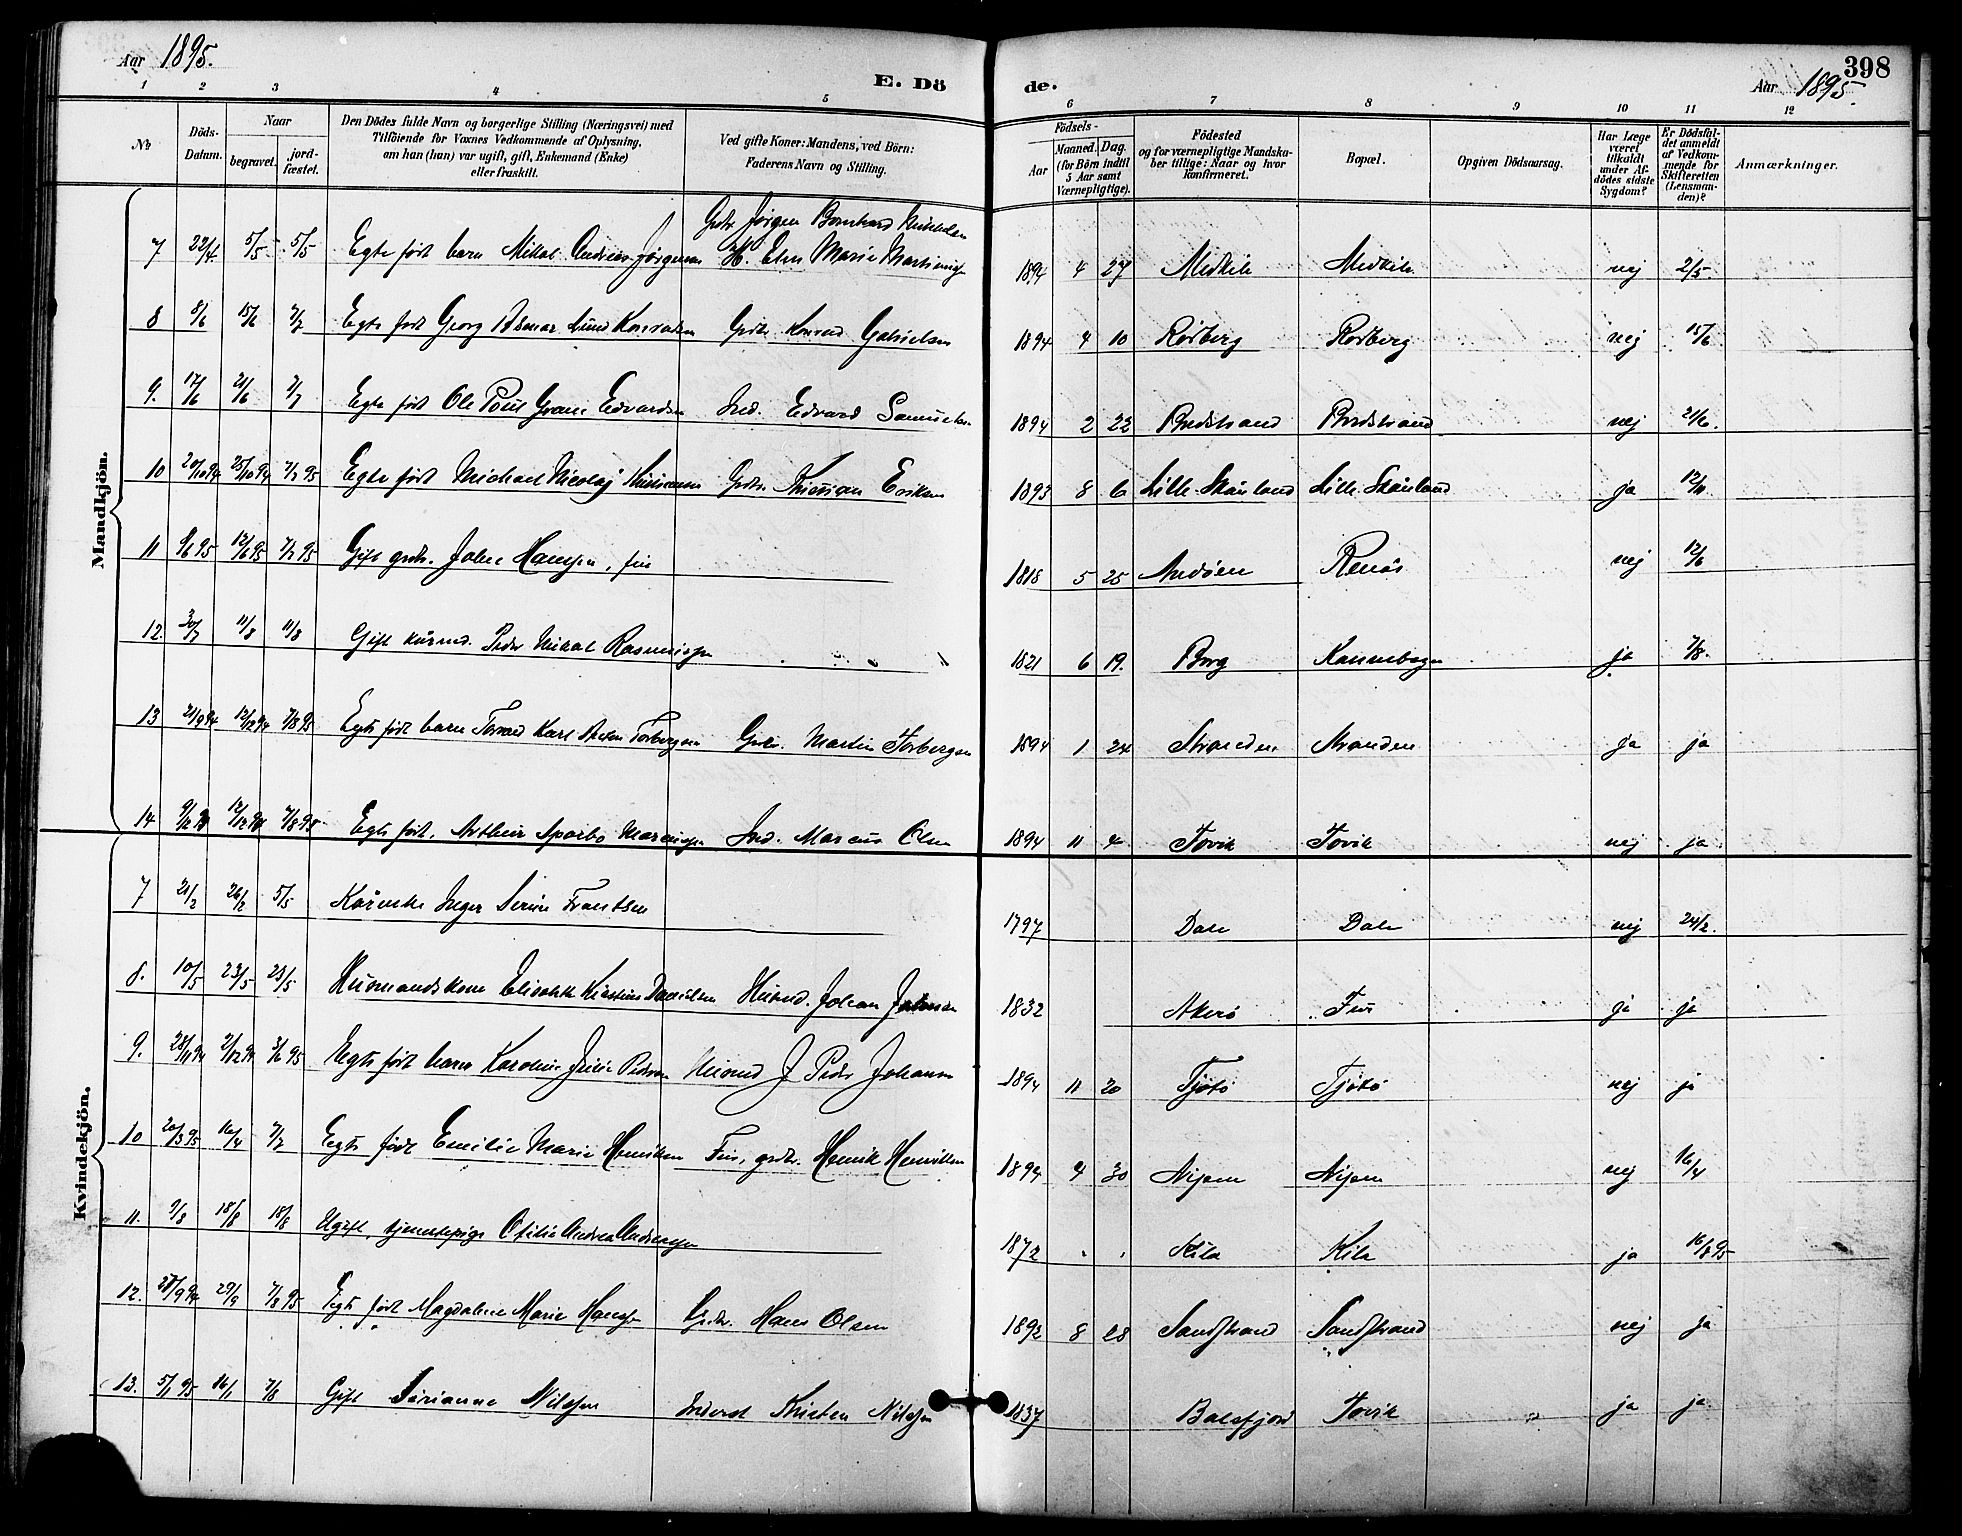 Aar 1895.
E. Dö
de.
Aar 1895.
398
1 2 3 4 5 6 7 8 9 10 11 12
No
Döds-Datum.
Naar
begravet.
jord-fæstet.
Den Dödes fulde Navn og borgerlige Stilling (Næringsvei) med
Tilföiende for Voxnes Vedkommende af Oplysning,
om han (han) var ugift, gift, Enkemand (Enke)
eller fraskilt.
Ved gifte Koner: Mandens, ved Börn:
Faderens Navn og Stilling.
Födsels-
Aar
Maaned. Dag.
(for Börn indtil
5 Aar samt
Værnepligtige).
Födested
og for værnepligtige Mandska-
ber tillige: Naar og hvor
konfirmeret.
Bopæl.
Opgiven Dödsaarsag.
Har Læge
været
tilkaldt
under Af-
dödes sidste
Sygdom?
Er Dödsfal-
det anmeldt
af Vedkom-
mende for
Skifteretten
(Lensman-
den)?
Anmærkninger.
Mandkjön.
Grdr. Jörgen Bernhard
7 22/4 5/5 5/5 Egte födt barn Mikal Andreas Jörgensen H. Elen Marie 1894 4 27 Medkila Medkila nej 2/5.
8 8/6 15/6 7/7 Egte födt Georg Konradsen Grdr. Konrad Gabrielsen 1894 4 10 Rödberg Rödberg nej 15/6
9. 17/6 21/6 7/7 Egte födt Ole Edvardsen Ind. Edvard Samuelsen 1894 2 22 Bredstrand Bredstrand nej 21/6.
10 20/10 94 25/10 94 7/7 95 Egte födt Michael Nicolaj Kristiansen Grdr. Kristian Eriksen 1893 8 6 Lille Skånland Lille Skånland ja 12/11
11 9/6 95 12/6 95 7/7 95 Gift grdr. Hansen, fin 1818 5 25 Andöen Renås nej 12/6
12. 30/7 11/8 11/8 Gift Peder Mikal Rasmussen 1821 6 19. Borg Kannebogen ja 7/8.
13 21/9 94 12/12 94 7/8 95 Egte födt barn Karl Torbergsen Grdr. Martin Torbergsen 1894 1 24 Stranden Stranden ja ja
14 12/12 94 7/8 95 Egte födt. Arthur Sparbo Marcussen Ind. Marcus Olsen 1894 11 4 Tovik Tovik nej ja
Kvindekjön.
7 21/2 26/2 5/5 Inger Serine Frantsen 1797 Dale Dale nej 24/2.
8. 10/5 23/5 23/5 Husmandskone Elisabeth Kirstine Danielsen Husmd. Johan 1832 Akerö ja ja
9. 28/11 94 2/12 94 3/6 95 Egte födt barn Karoline Julie Pedersen Husmd J Peder Johansen 1894 11 20 Tjötö Tjötö nej ja
10 20/3 95 16/4 7/7 Egte födt Emilie Marie Henriksen Fin, grdr. Henrik Henriksen 1894 4 30 nej 16/4
11. 9/8 18/8 18/8 Ugift, tjenestepige Otilie Andrea Andreassen 1872 Kila Kila ja 16/8 95
12. 29/9 7/8 95 Egte födt Magdalene Marie Hansen Grdr. Hans Olsen 1892 8 28 Sandstrand Sandstrand nej ja
13. 5/1 95 16/1 7/8 Gift Sirianne Nilssen Inderst Kristen Nilssen 1837 Balsfjord Tovik ja ja